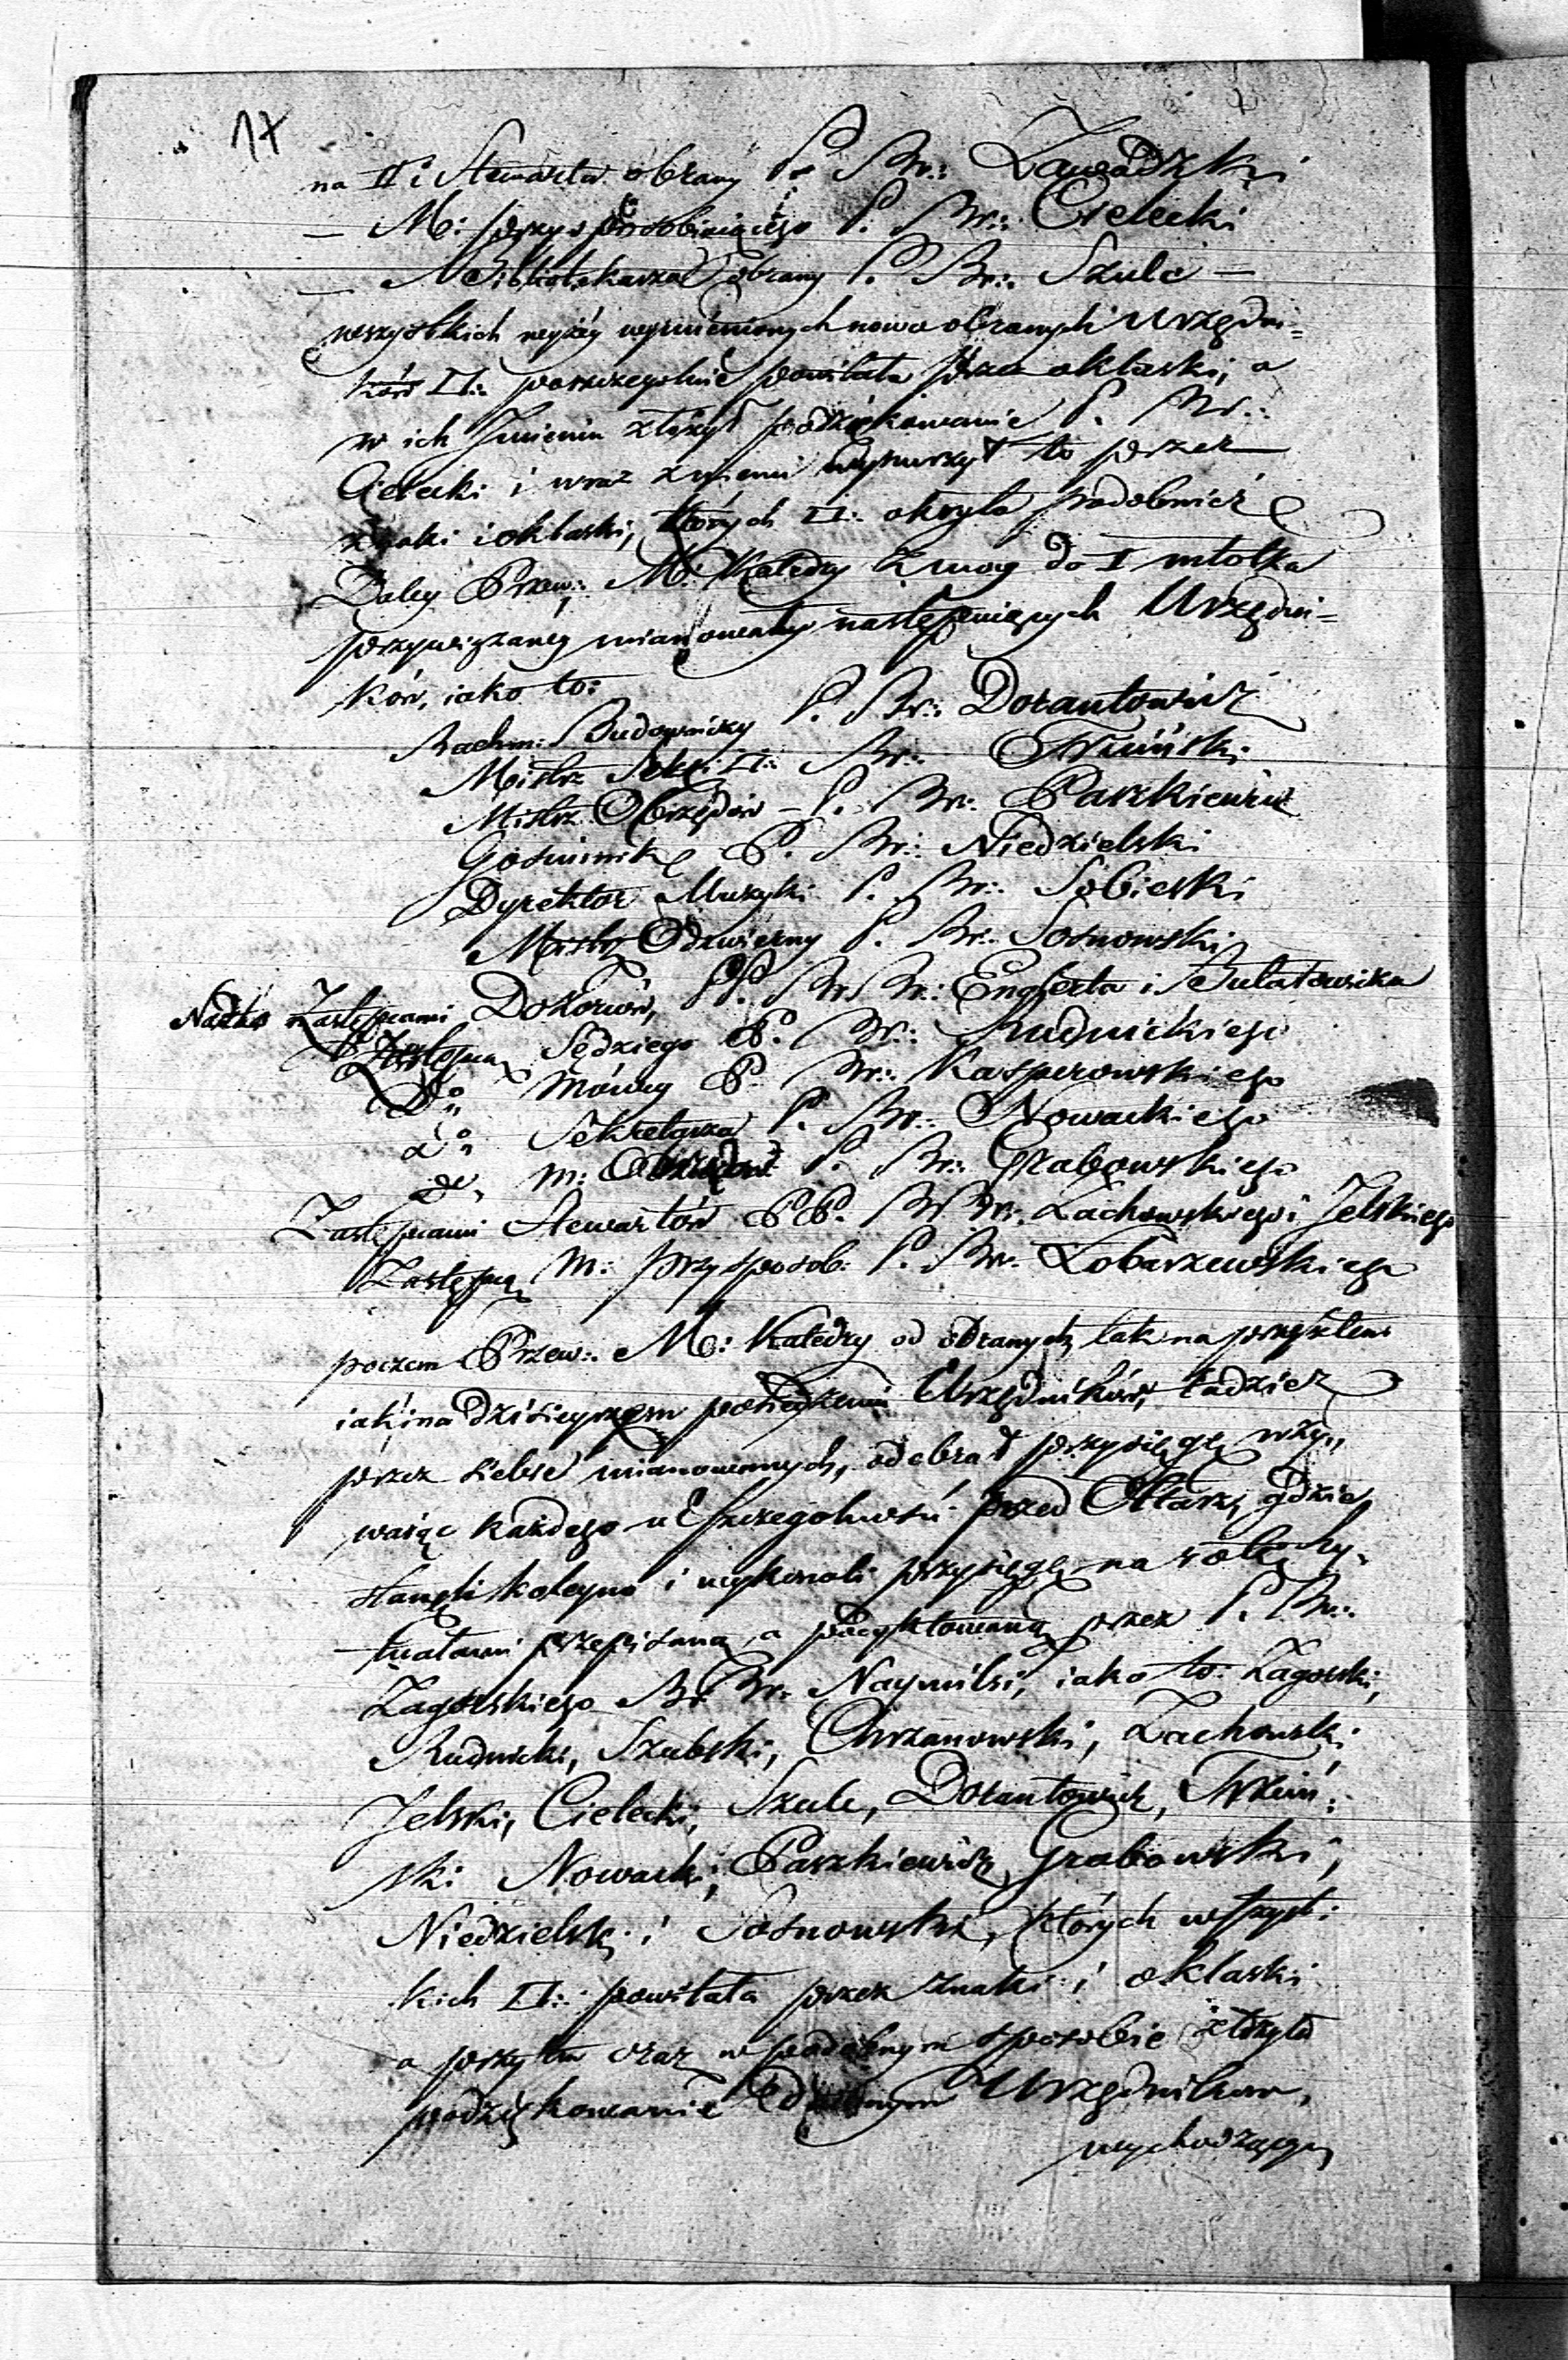 17
na II i Stewarta obrany P. Br:. Zawadzki
— M: przysposobiaiącego P. Br:. Cielecki
— Bibliotekarza obrany P. Br:. Szulc —
wszystkich wyżéy wymienionych nowo obranych Urzędni=
ków □:. poszczegolnie powitała przez oklaski, a
w ich Jmieniu złożył podziękowanie P. Br:.
Cielecki i wraz z niemi wynurzył to przez
znaki i oklaski, których □:. okryła podobnież
Daley Przew:. M: Katedry z mocy do I młotka
przywiązaney mianował następuiących Urzędni=
ków, iako to:
Rachm: Budowniczy P. Br:. Dozantowicz
Mistrz Sekr: □:. Br:. Trzciński
Mistrz Obrzędów — P. Br:. Paszkiewicz
Gościnnik P. Br:. Niedzielski
Dyrektor Muzyki P. Br:. Sobieski
Mistrz Odzwierny P. Br:. Sosnowski
Nadto Zastępcami Dozorców, PP. Br Br:. Englerta i Bulatowicza
Zastępcą Sędziego P. Br:. Rudnickiego
Do Mówcy P. Br:. Kasperowskiego
do Sekretarza P. Br:. Nowackiego
do M: Obrzędów P. Br:. Grabowskiego
Zastępcami Stewartów PP. Br Br:. Zachowskiego i Jelskiego
Zastępcą M: przysposob: P. Br. Łobarzewskiego
poczem Przew:. M: Katedry od obranych tak na przeszłem
iak i na dzisieyszem posiedzeniu Urzędników, tudzież
przez siebie mianowanych, odebrał przysięgę wzy„
waiąc każdego w szczegolności przed Ołtarz, gdzie
stanęli koleyno i wykonali przysięgę na rotę ry„
tuałami przepisaną, a podyktowaną przez P. Br:.
Zagorskiego Br Br. Naymilsi, iako to: Zagorski,
Rudnicki, Szubski, Chrzanowski, Zachowski
Jelski, Cielecki, Szulc, Dozantowicz, Trzciń:
ski Nowacki, Paszkiewicz, Grabowski,
Niedzielski i Sosnowski, których wszyst:
kich □:. powitała przez znaki i oklaski
a przytem oraz w podobnym sposobie złożyła
podziękowanie Urzędnikom,
wychodzącym